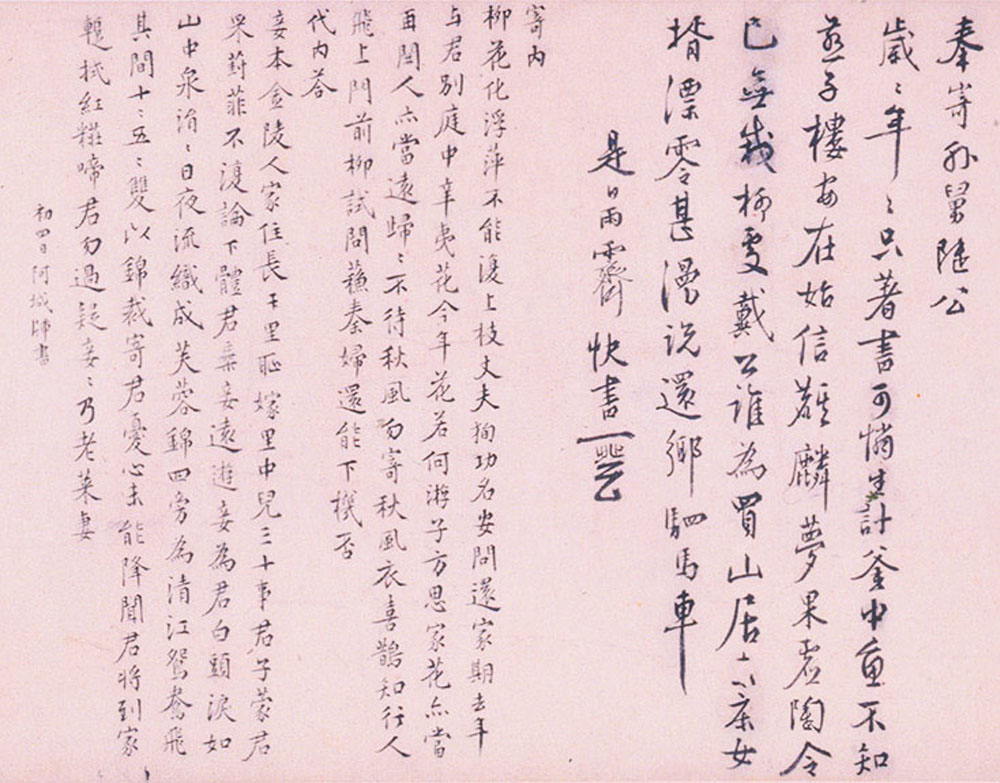 奉寄孙舅隨公
歲〻年〻只著書可憐生計釜中魚不知
燕子樓安在姑信麒麟夢果虚陶令
已無栽柳處戴公誰為買山居六亲女
婿漂零甚漫说還鄉駟馬車
是日雨霽快書一
寄内
柳花化浮萍不能復上枝丈夫拘功名安問還家期去年
与君别庭中辛夷花今年花若何游子方思家花亦當
再開人亦當遠歸〻不待秋風勿寄秋風衣喜鵲知行人
飛上門前柳試問蘇秦婦還能下機否
代内答
妾本金陵人家住長干里恥嫁里中兒三十事君子蒙君
采葑菲不復論下體君棄妾遠遊妾為君白頭淚如
山中泉涓〻日夜流織成芙蓉錦四旁為清江鴛鴦飛
其間十〻五〻雙以錦裁寄君憂心未能降聞君將到家
輒拭紅糚啼君勿過疑妾〻乃老萊妻
初四日阿城歸書